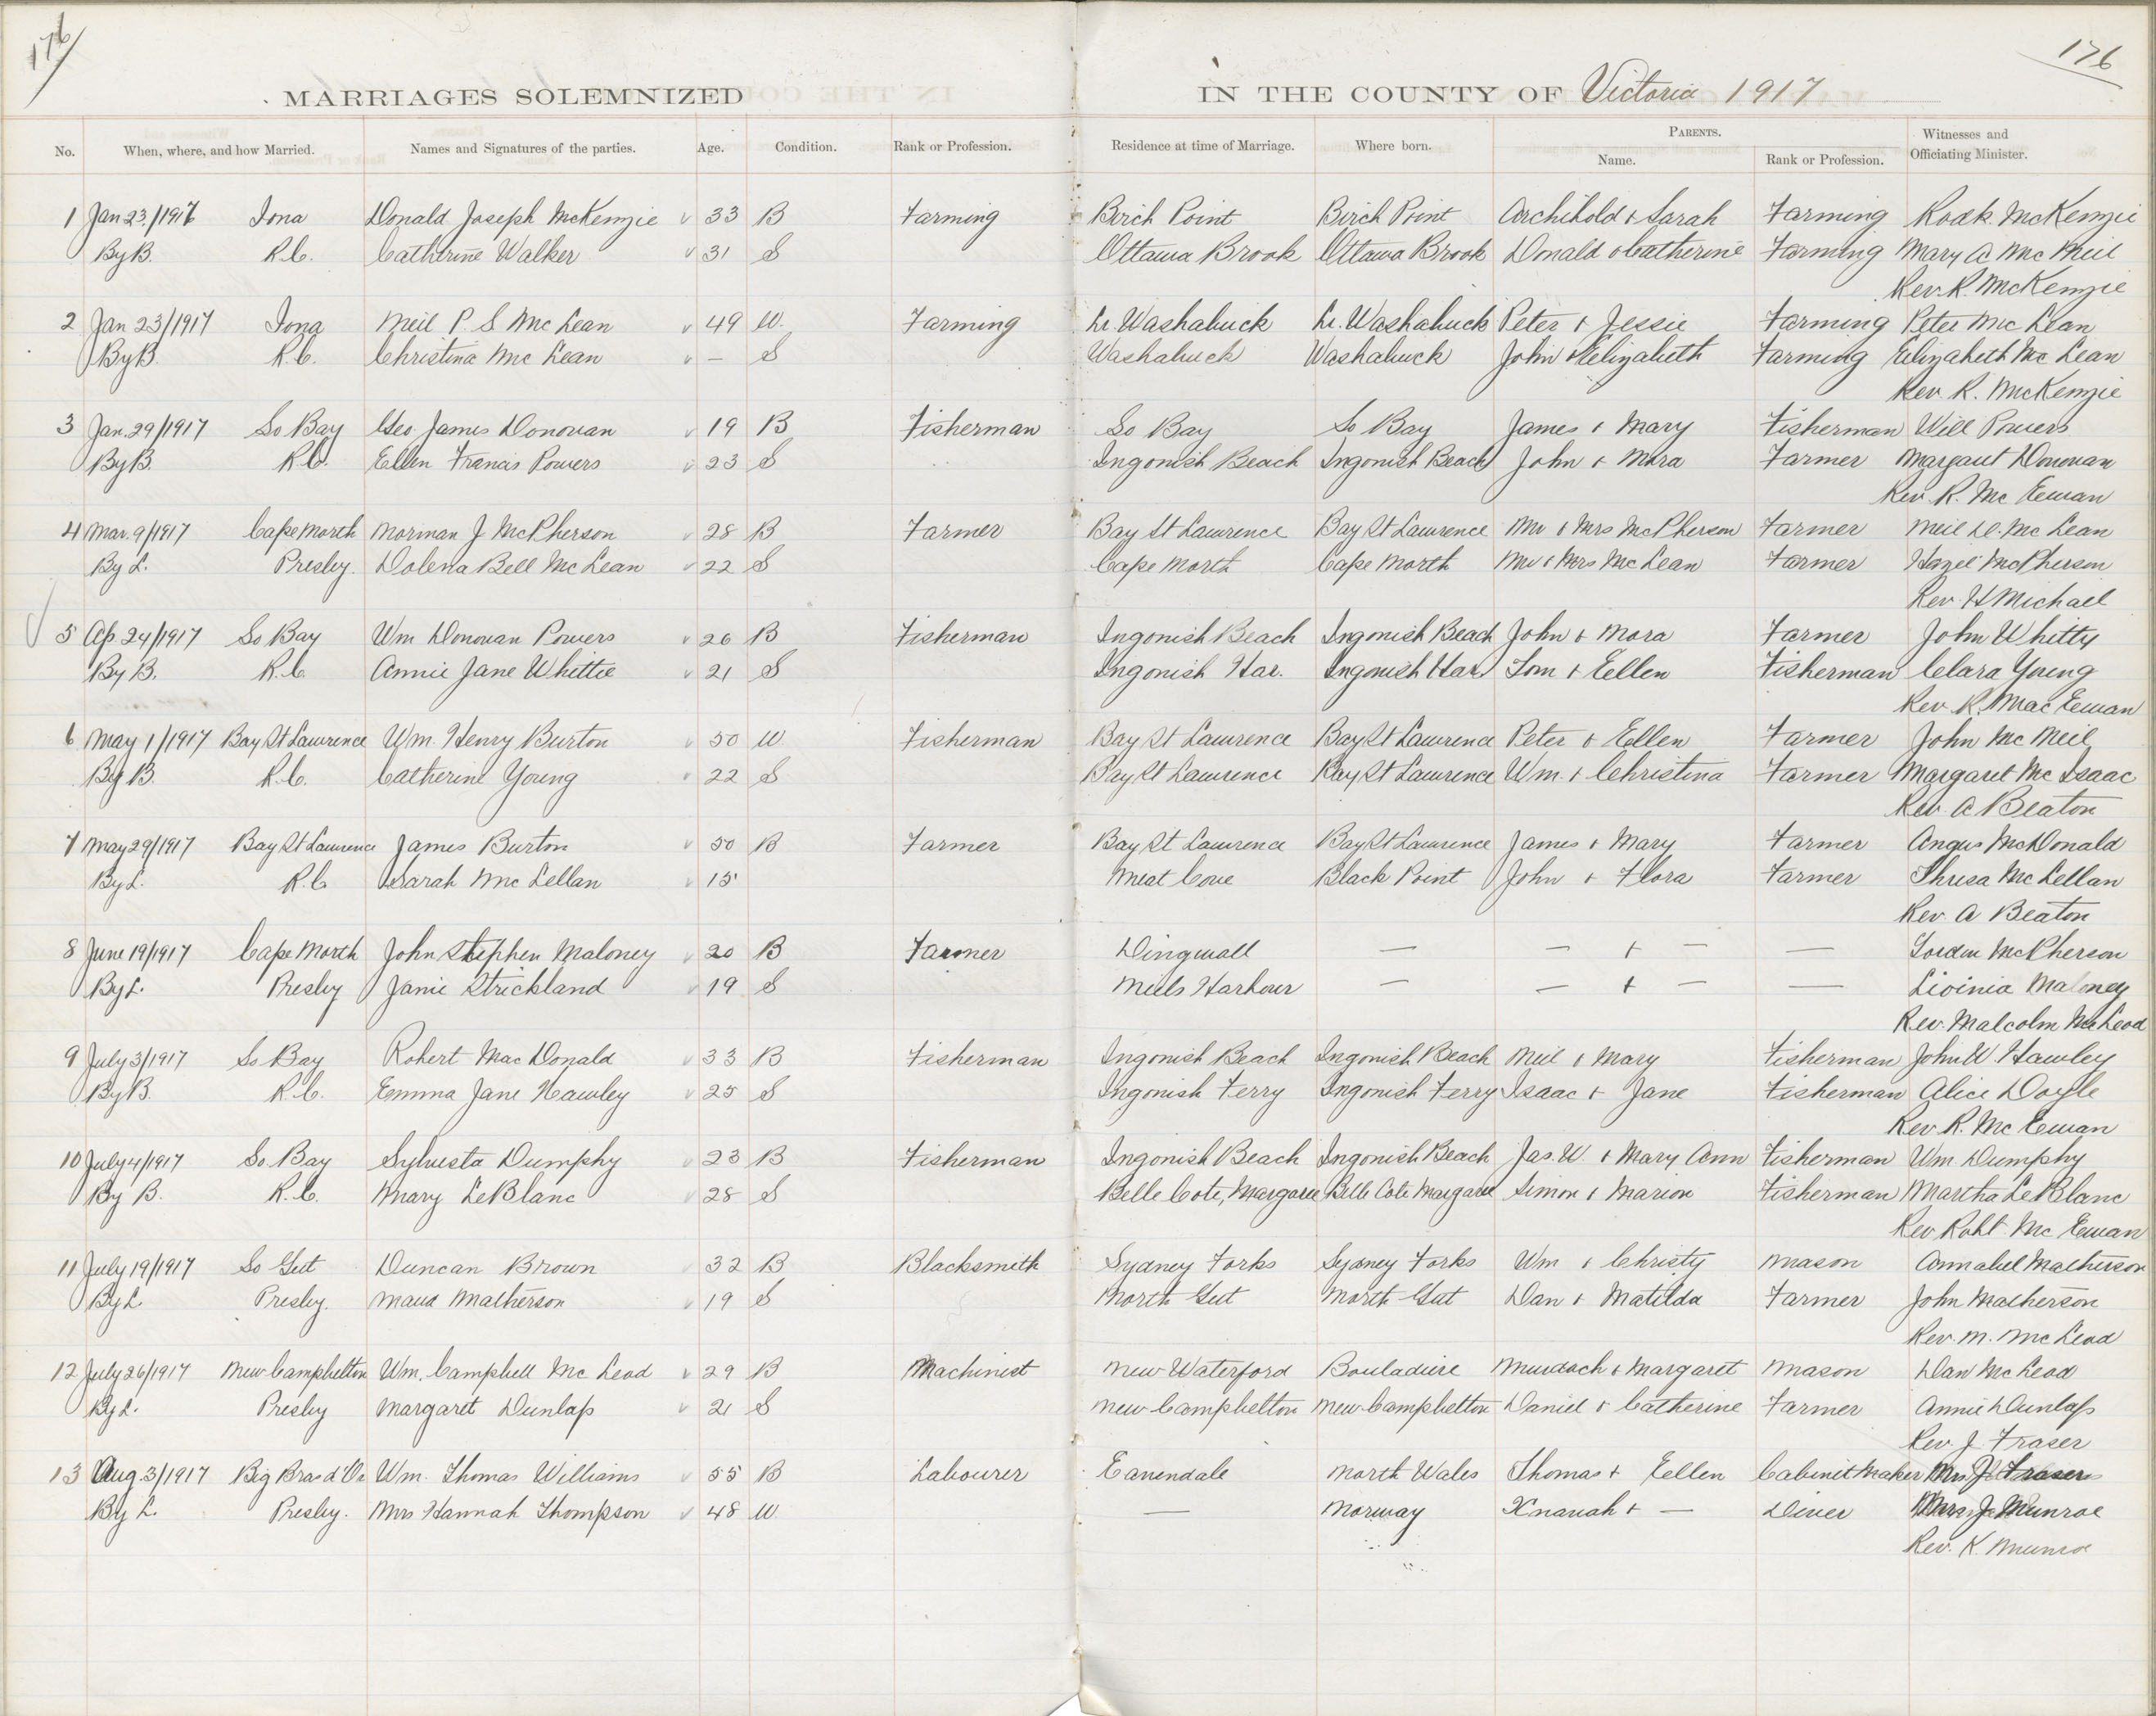 176
176
MARRIAGES SOLEMNIZED IN THE COUNTY OF Victoria 1917
No. When, where, and how Married. Names and Signatures of the parties. Age. Condition. Rank or Profession. Residence at time of Marriage. Where born. PARENTS. Name. Rank or Profession. Witnesses and Officiating Minister.
1 Jan 23/1917 Iona Donald Joseph McKenzie 33 B Farming Birch Point Birch Point Archibold + Sarah Farming Rodk. McKenzie
By B. R.C. Catherine Walker 31 S Ottawa Brook Ottawa Brook Donald + Catherine Farming Mary A McNeil
Rev. R. McKenzie
2 Jan 23/1917 Iona Neil P. S McLean 49 W. Farming Lr. Washabuck Lr. Washabuck Peter + Jessie Farming Peter McLean
By B. R.C. Christina McLean — S Washabuck Washabuck John + Elizabeth Farming Elizabeth McLean
Rev. R. McKenzie
3 Jan. 29/1917 So Bay Geo. James Donovan 19 B Fisherman So Bay So Bay James + Mary Fisherman Will Powers
By B. R.C. Ellen Francis Powers 23 S Ingonish Beach Ingonish Beach John + Mora Farmer Margaret Donovan
Rev. R. McEwan
4 Mar. 9/1917 Cape North Norman J McPherson 28 B Farmer Bay St Lawrence Bay St Lawrence Mr + Mrs McPherson Farmer Neil D. McLean
By L. Presby. Dolena Bell McLean 22 S Cape North Cape North Mr + Mrs McLean Farmer Hazel McPherson
Rev. H Michael
5 Ap 24/1917 So Bay Wm Donovan Powers 26 B Fisherman Ingonish Beach Ingonish Beach John + Mora Farmer John Whitty
By B. R.C. Annie Jane Whittie 21 S Ingonish Har. Ingonish Har. Tom + Ellen Fisherman Clara Young
Rev R. MacEwan
6 May 1/1917 Bay St Lawrence Wm. Henry Burton 50 W Fisherman Bay St Lawrence Bay St Lawrence Peter + Ellen Farmer John McNeil
By B. R.C. Catherine Young 22 S Bay St Lawrence Bay St Lawrence Wm. + Christina Farmer Margaret McIsaac
Rev. A Beaton
7 May 29/1917 Bay St Lawrence James Burton 50 B Farmer Bay St Lawrence Bay St Lawrence James + Mary Farmer Angus McDonald
By L. R.C Sarah McLellan 15 Meat Cove Black Point John + Flora Farmer Thresa McLellan
Rev. A Beaton
8 June 19/1917 Cape North John Stephen Maloney 20 B Farmer Dingwall — — + — — McPherson
By L. Presby Janie Strickland 19 S Neils Harbour — — + — — Livinia Maloney
Rev. Malcolm McLeod
9 July 3/1917 So Bay Robert MacDonald 33 B Fisherman Ingonish Beach Ingonish Beach Neil + Mary Fisherman John W. Hawley
By B. R.C. Emma Jane Hawley 25 S Ingonish Ferry Ingonish Ferry Isaac + Jane Fisherman Alice Doyle
Rev. R. McEwan
10 July 4/1917 So. Bay Sylvesta Dumphy 23 B Fisherman Ingonish Beach Ingonish Beach Jas. W. + Mary Ann Fisherman Wm. Dumphy
By B. R.C. Mary LeBlanc 28 S Belle Cote, Margaree Belle Cote Margaree Simon + Marion Fisherman Martha LeBlanc
Rev Robt McEwan
11 July 19/1917 So Gut Duncan Brown 32 B Blacksmith Sydney Forks Sydney Forks Wm + Christy Mason Annabel Matherson
By L Presby. Maud Matherson 19 S North Gut North Gut Dan + Matilda Farmer John Matherson
Rev. M. McLeod
12 July 26/1917 New Campbelton Wm. Campbell McLeod 29 B Machinist New Waterford Bouladire Murdoch + Margaret Mason Dan McLeod
By L. Presby Margaret Dunlap 21 S New Campbelton New Campbelton Daniel + Catherine Farmer Annie Dunlap
Rev. J. Fraser
13 Aug. 3/1917 Big Bras d'Or Wm. Thomas Williams 55 B Labourer North Wales Thomas + Ellen Cabinet Maker Mrs J Fraser
By L. Presby. Mrs Hannah Thompson 48 W — Norway + — Diver Mrs J Munroe
Rev. K. Munroe